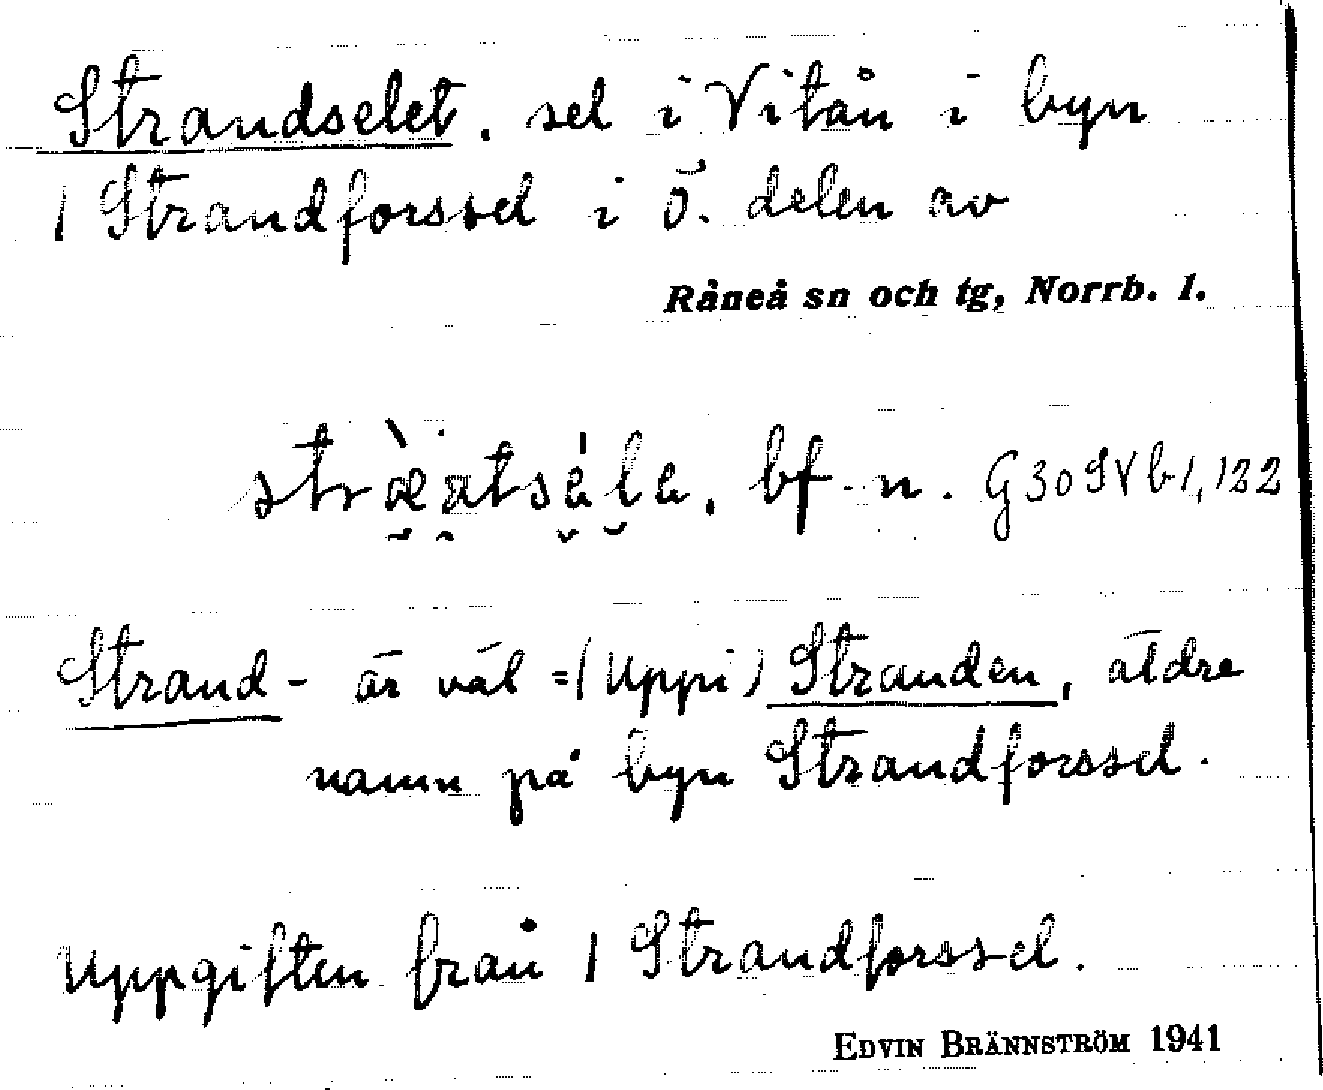 Strandselet. sel i Vitån i byn
1 Strandforssel i ö. delen av
Råneå sn och tg, Norrb. l.
bf. n. G30 IV b1, 122
Strand- är väl =(Uppi) Stranden, äldre
namn på byn Strandforssel.
Uppgiften från 1 Strandforssel.
EDVIN BRÄNNSTRÖM 1941